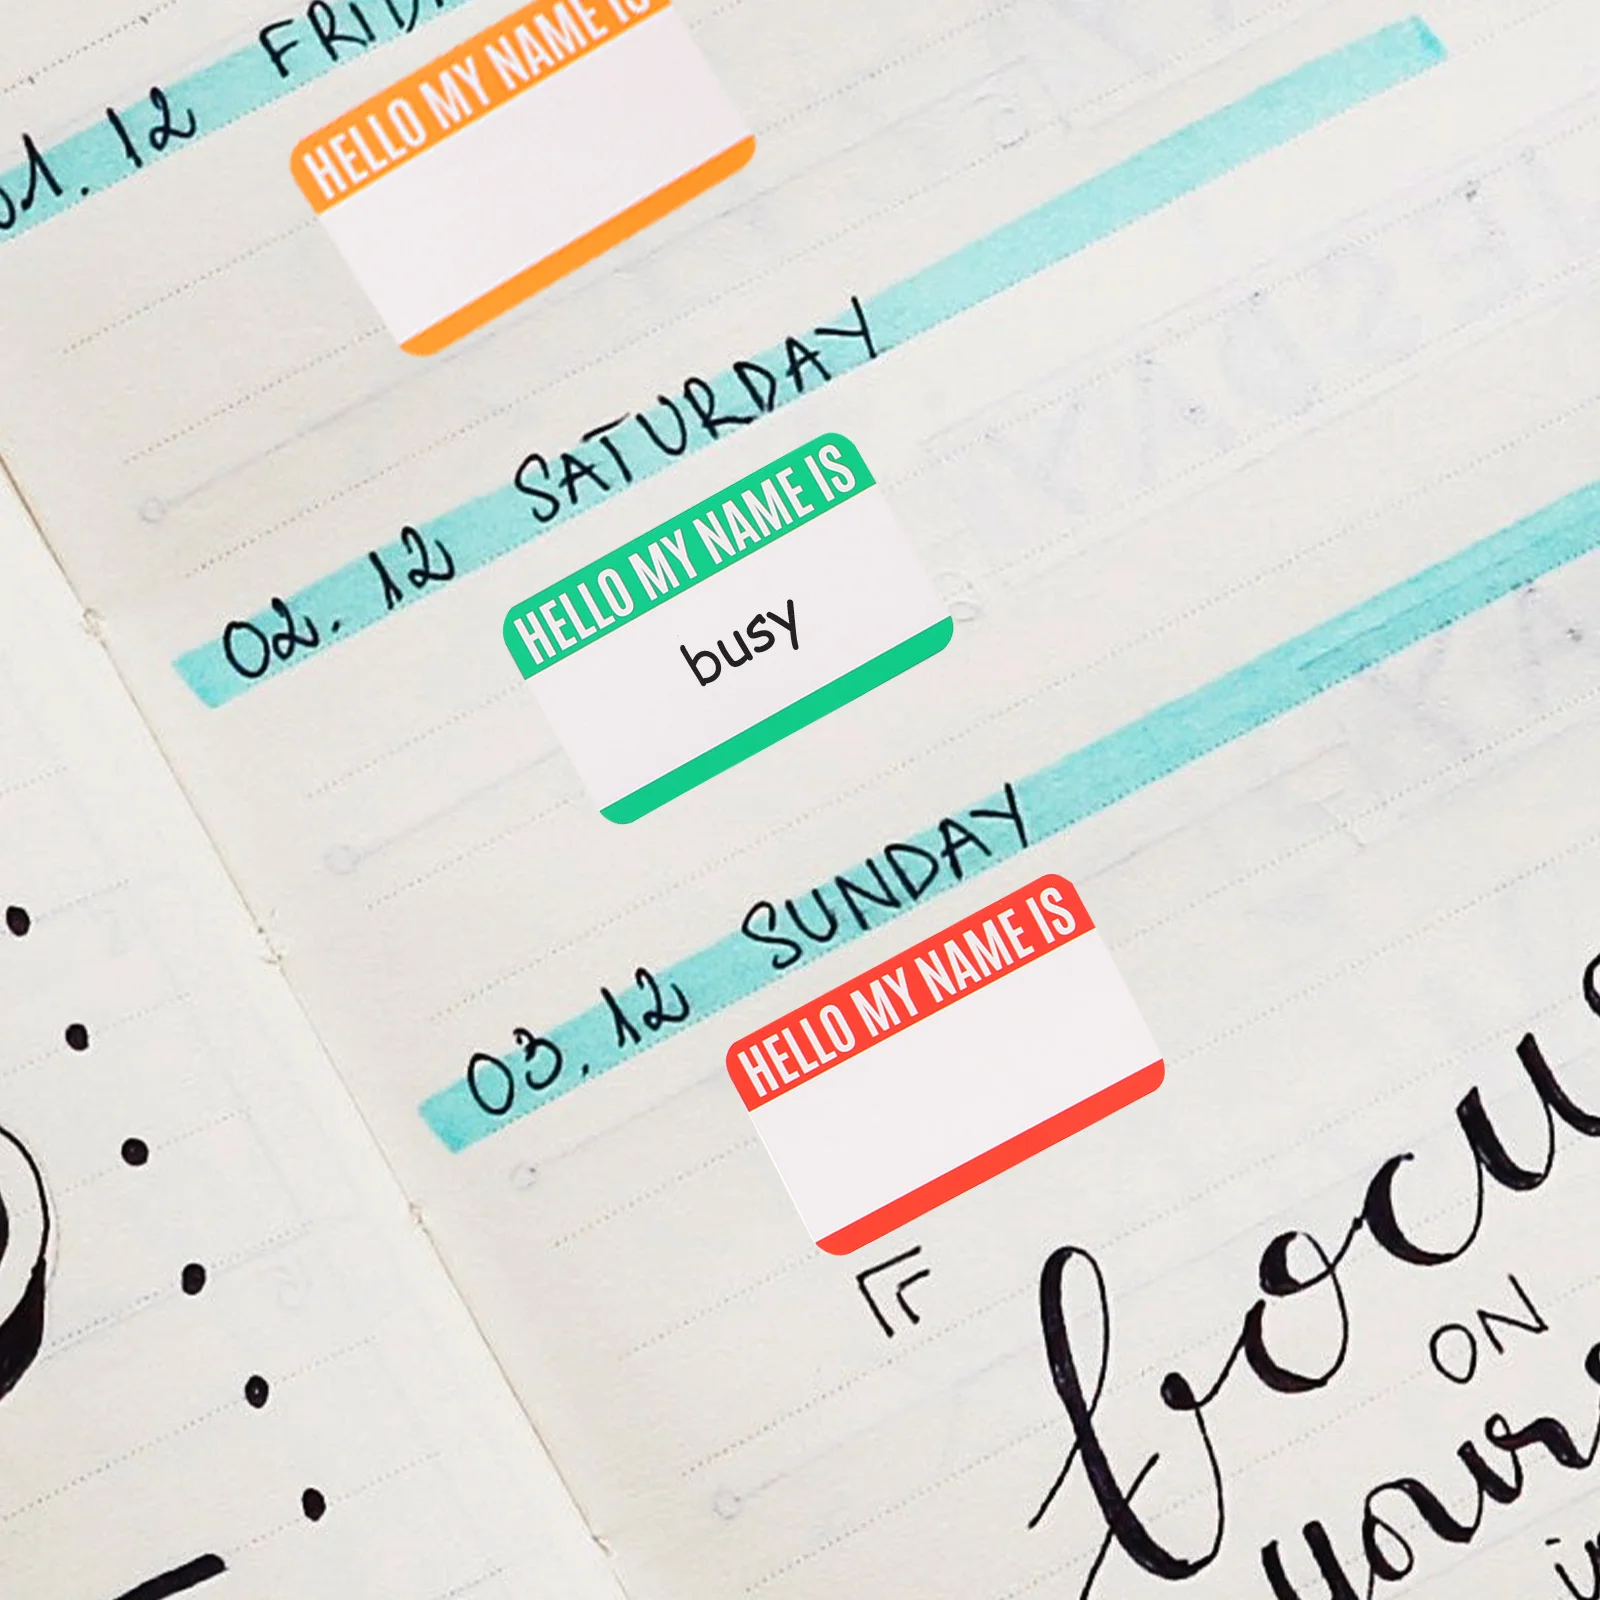 01. 12
HELLO MY NAME IS
02. 12 SATURDAY
HELLO MY NAME IS
busy
03. 12 SUNDAY
HELLO MY NAME IS
ON